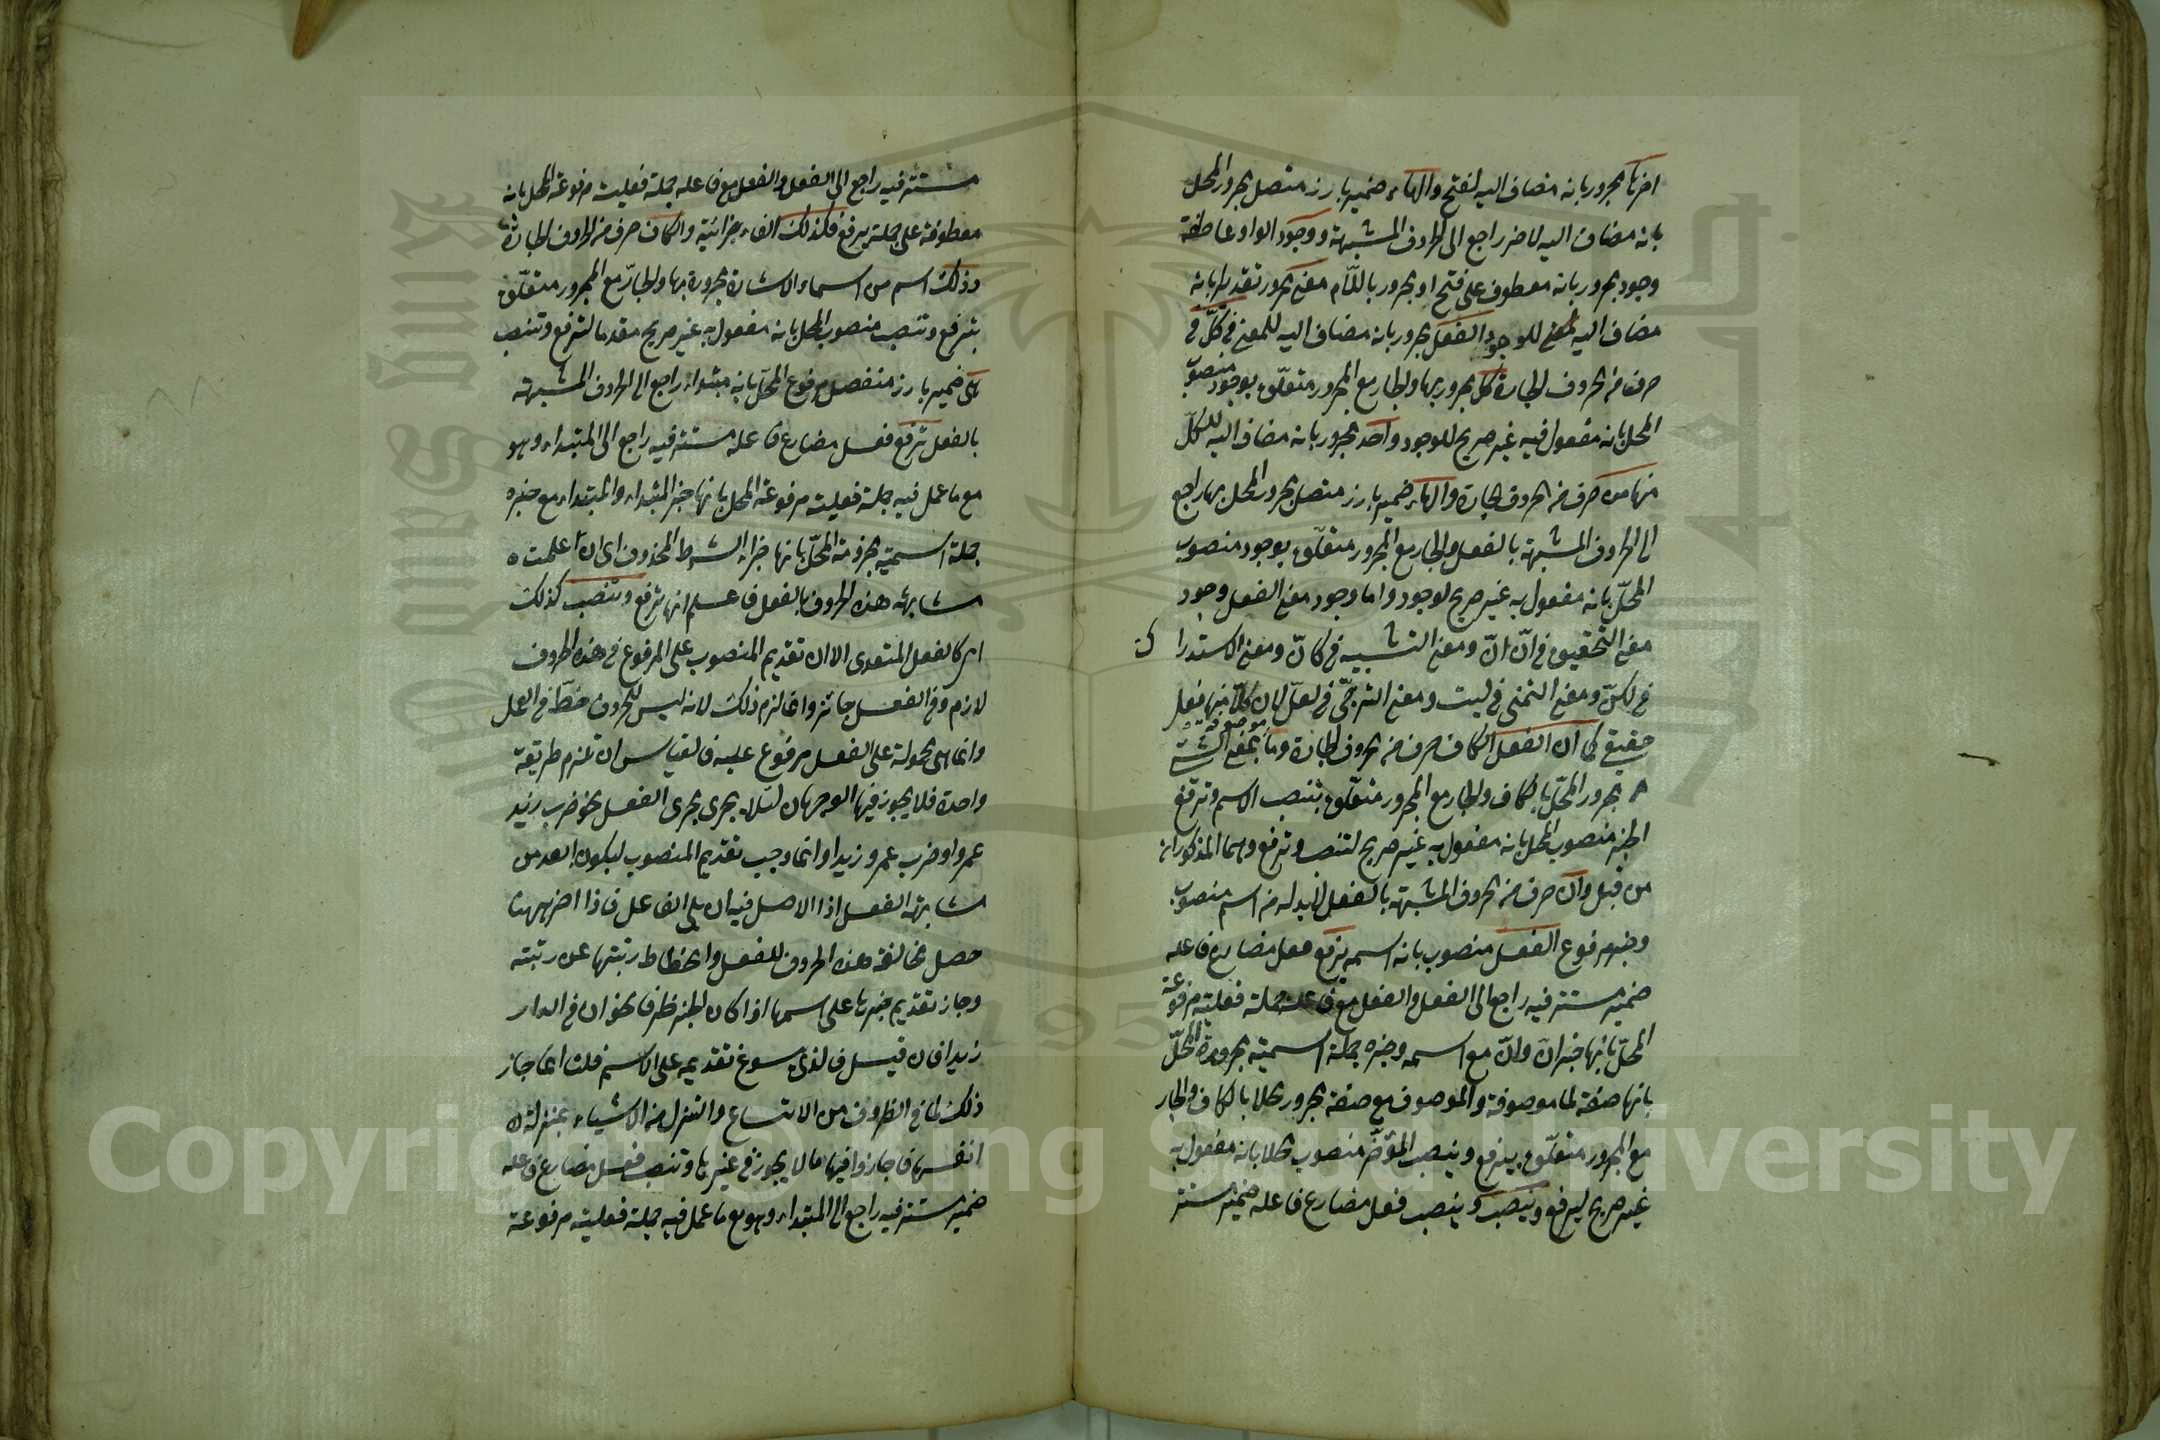 اخرها مجرور بانه مضاف اليه لفتح والهاء ضمير بارز متصل مجرور المحل
بانه مضاف اليه لاخر راجع الى الحروف المشبهة ووجود الواو عاطفة
وجود مجرور بانه معطوف على فتح او مجرور باللام معنى مجرور تقديرا بانه
مضاف اليه للوجود الفعل مجرور بانه مضاف اليه للمعنى في كل في
حرف من الحروف الجارة كل مجرور بها والجار مع المجرور متعلق بوجود منصوب
المحل بانه مفعول فيه غير صريح للوجود واحد مجرور بانه مضاف اليه للكل
منها من حرف من الحروف الجارة والهاء ضمير بارز متصل مجرور المحل بها راجع
الى الحروف المشبهة بالفعل والجار مع المجرور متعلق بوجود منصوب
المحل بانه مفعول به غير صريح لوجود واما وجود معنى الفعل وجود
معنى التحقيق في انّ انّ ومعنى التشبيه في كانّ ومعنى الاستدراك
في لكنّ ومعنى التمني في ليت ومعنى الترجّي في لعلّ لان كلّا منها فعل
حقيقي كما ان الفعل الكاف حرف من الحروف الجارة وما موصوفة بمعنى الشئ
مجرور المحلّ بالكاف والجار مع المجرور متعلّق بتنصب الاسم وترفع
الخبر منصوب المحل بانه مفعول به غير صريح لتنصب وترفع وهما المذكوران
من قبل وان حرف من الحروف المشبهة بالفعل لابد له من اسم منصوب
وخبر مرفوع الفعل منصوب بانه اسمه يرفع فعل مضارع فاعله
ضمير مستتر فيه راجع الى الفعل والفعل مع فاعله جملة فعلية مرفوعة
المحلّ بانها خبر انّ وانّ مع اسمه وخبره جملة اسمية مجرورة المحلّ
بانها صفة لما موصوفة والموصوف مع صفة مجرور محلا بالكاف والجار
مع المجرور متعلّق بيرفع وينصب المؤخّر منصوب محلا بانه مفعول به
غير صريح ليرفع وينصب وينصب فعل مضارع فاعله ضمير مستتر
مستتر فيه راجع الى الفعل والفعل مع فاعله جملة فعلية مرفوعة المحل بانه
معطوفة على جملة يرفع فكذلك الفاء جزائية والكاف حرف من الحروف الجارة
وذلك اسم من اسماء الاشارة مجرورة بها والجارّ مع المجرور متعلّق
بترفع وتنصب منصوب المحل بانه مفعول به غير صريح مقدما لترفع وتنصب
هي ضمير بارز منفصل مرفوع المحلّ بانه مبتداء راجع الى الحروف المشبهة
بالفعل ترفع فعل مضارع فاعله مستتر فيه راجع الى المبتداء وهو
مع ما عمل فيه جملة فعلية مرفوعة المحل بانها خبر المبتداء والمبتداء مع خبره
جملة اسمية مجزومة المحلّ بانها جزاء الشرط المحذوف اى ان علمت
مشابهة هذه الحروف بالفعل فاعلم انها ترفع وتنصب كذلك
اى كالفعل المتعدى الا ان تقديم المنصوب على المرفوع في هذه الحروف
لازم وفى الفعل جائز وانما لزم ذلك لانه ليس للحروف حظّ في العمل
وانما هى محمولة على الفعل مرفوع عليه فالقياس ان تلزم طريقة
واحدة فلا يجوز فيها الوجهان لئلا يجرى مجرى الفعل نحو ضرب زيد
عمروا وضرب عمرو زيدا وانما وجب تقديم المنصوب ليكون ابعد من
مشابهة الفعل اذا الاصل فيه ان يلى الفاعل فاذا اخر ههنا
حصل مخالفة هذه الحروف للفعل وانحطاط رتبتها عن رتبته
وجاز تقديم خبرها على اسمها اذا كان الخبر ظرفا نحو ان في الدار
زيدا فان قيل فالذى سوغ تقديمه على الاسم قلت انما جاز
ذلك لما في الظروف من الاتساع والتنزل من الاشياء بمنزلة
انفسها فاجازوا فيها ما لا يجوز في غيرها وتنصب فعل مضارع فاعله
ضمير مستتر فيه راجع الى المبتداء وهو مع ما عمل فيه جملة فعلية مرفوعة
Copyright © King Saud University
King Saud
195